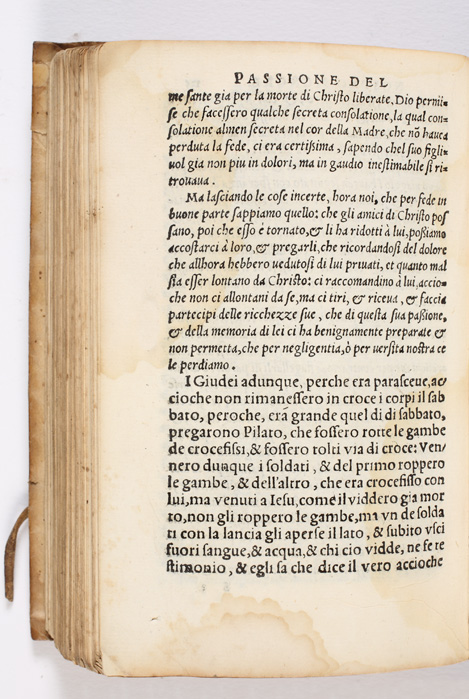 PASSIONE DEL
me sante gia per la morte di Christo liberate. Dio permis=
se che facessero qualche secreta consolatione, la qual con=
solatione almen secreta nel cor della Madre, che nõ hauea
perduta la fede, ci era certißima, sapendo chel suo figli=
uol gia non piu in dolori, ma in gaudio inestimabile si ri=
trouaua.
Ma lasciando le cose incerte, hora noi, che per fede in
buone parte sappiamo quello: che gli amici di Christo pos
sano, poi che esso è tornato, & li ha ridotti à lui, poßiamo
accostarci à loro, & pregarli, che ricordandosi del dolore
che allhora hebbero uedutosi di lui priuati, et quanto mal
sia esser lontano da Christo: ci raccomandino à lui, accio=
che non ci allontani da se, ma ci tiri, & riceua, & faccia
partecipi delle ricchezze sue, che di questa sua paßione,
& della memoria di lei ci ha benignamente preparate &
non permetta, che per negligentia, ò per uersita nostra ce
le perdiamo.
I Giudei adunque, perche era parasceue, ac
cioche non rimanessero in croce i corpi il sab
bato, peroche, erã grande quel di di sabbato,
pregarono Pilato, che fossero rotte le gambe
de crocefissi, & fossero tolti via di croce: Ven/
nero dunque i soldati, & del primo roppero
le gambe, & dell'altro, che era crocefisso con
lui, ma venuti a Iesu, come il viddero gia mor
to, non gli roppero le gambe, ma vn de solda
ti con la lancia gli aperse il lato, & subito vsci
fuori sangue, & acqua, & chi cio vidde, ne fe te
stimonio, & egli sa che dice il vero accioche